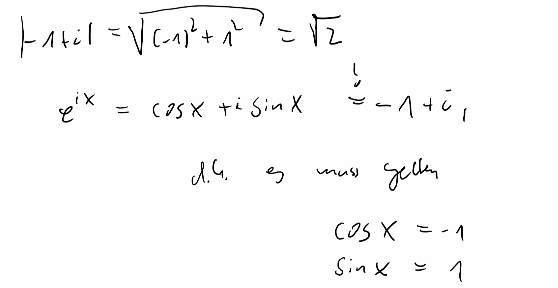 |-1+i| = √((-1)² + 1²) = √2
e^{ix} = cos x + i sin x =! -1 + i,
d.h. es muss gelten
cos x = -1
sin x = 1